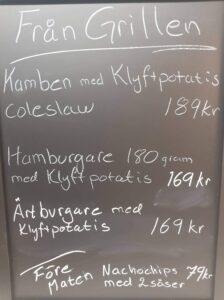 Från Grillen
Kamben med Klyftpotatis
coleslaw 189kr
Hamburgare 180 gram
med Klyftpotatis 169kr
Ärtburgare med
Klyftpotatis 169kr
Före Nachochips 79kr
Maten med 2 såser